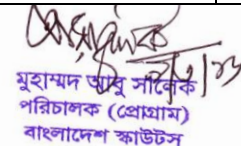 মুহাম্মদ আবু সালেক
পরিচালক (প্রোগ্রাম)
বাংলাদেশ স্কাউটস